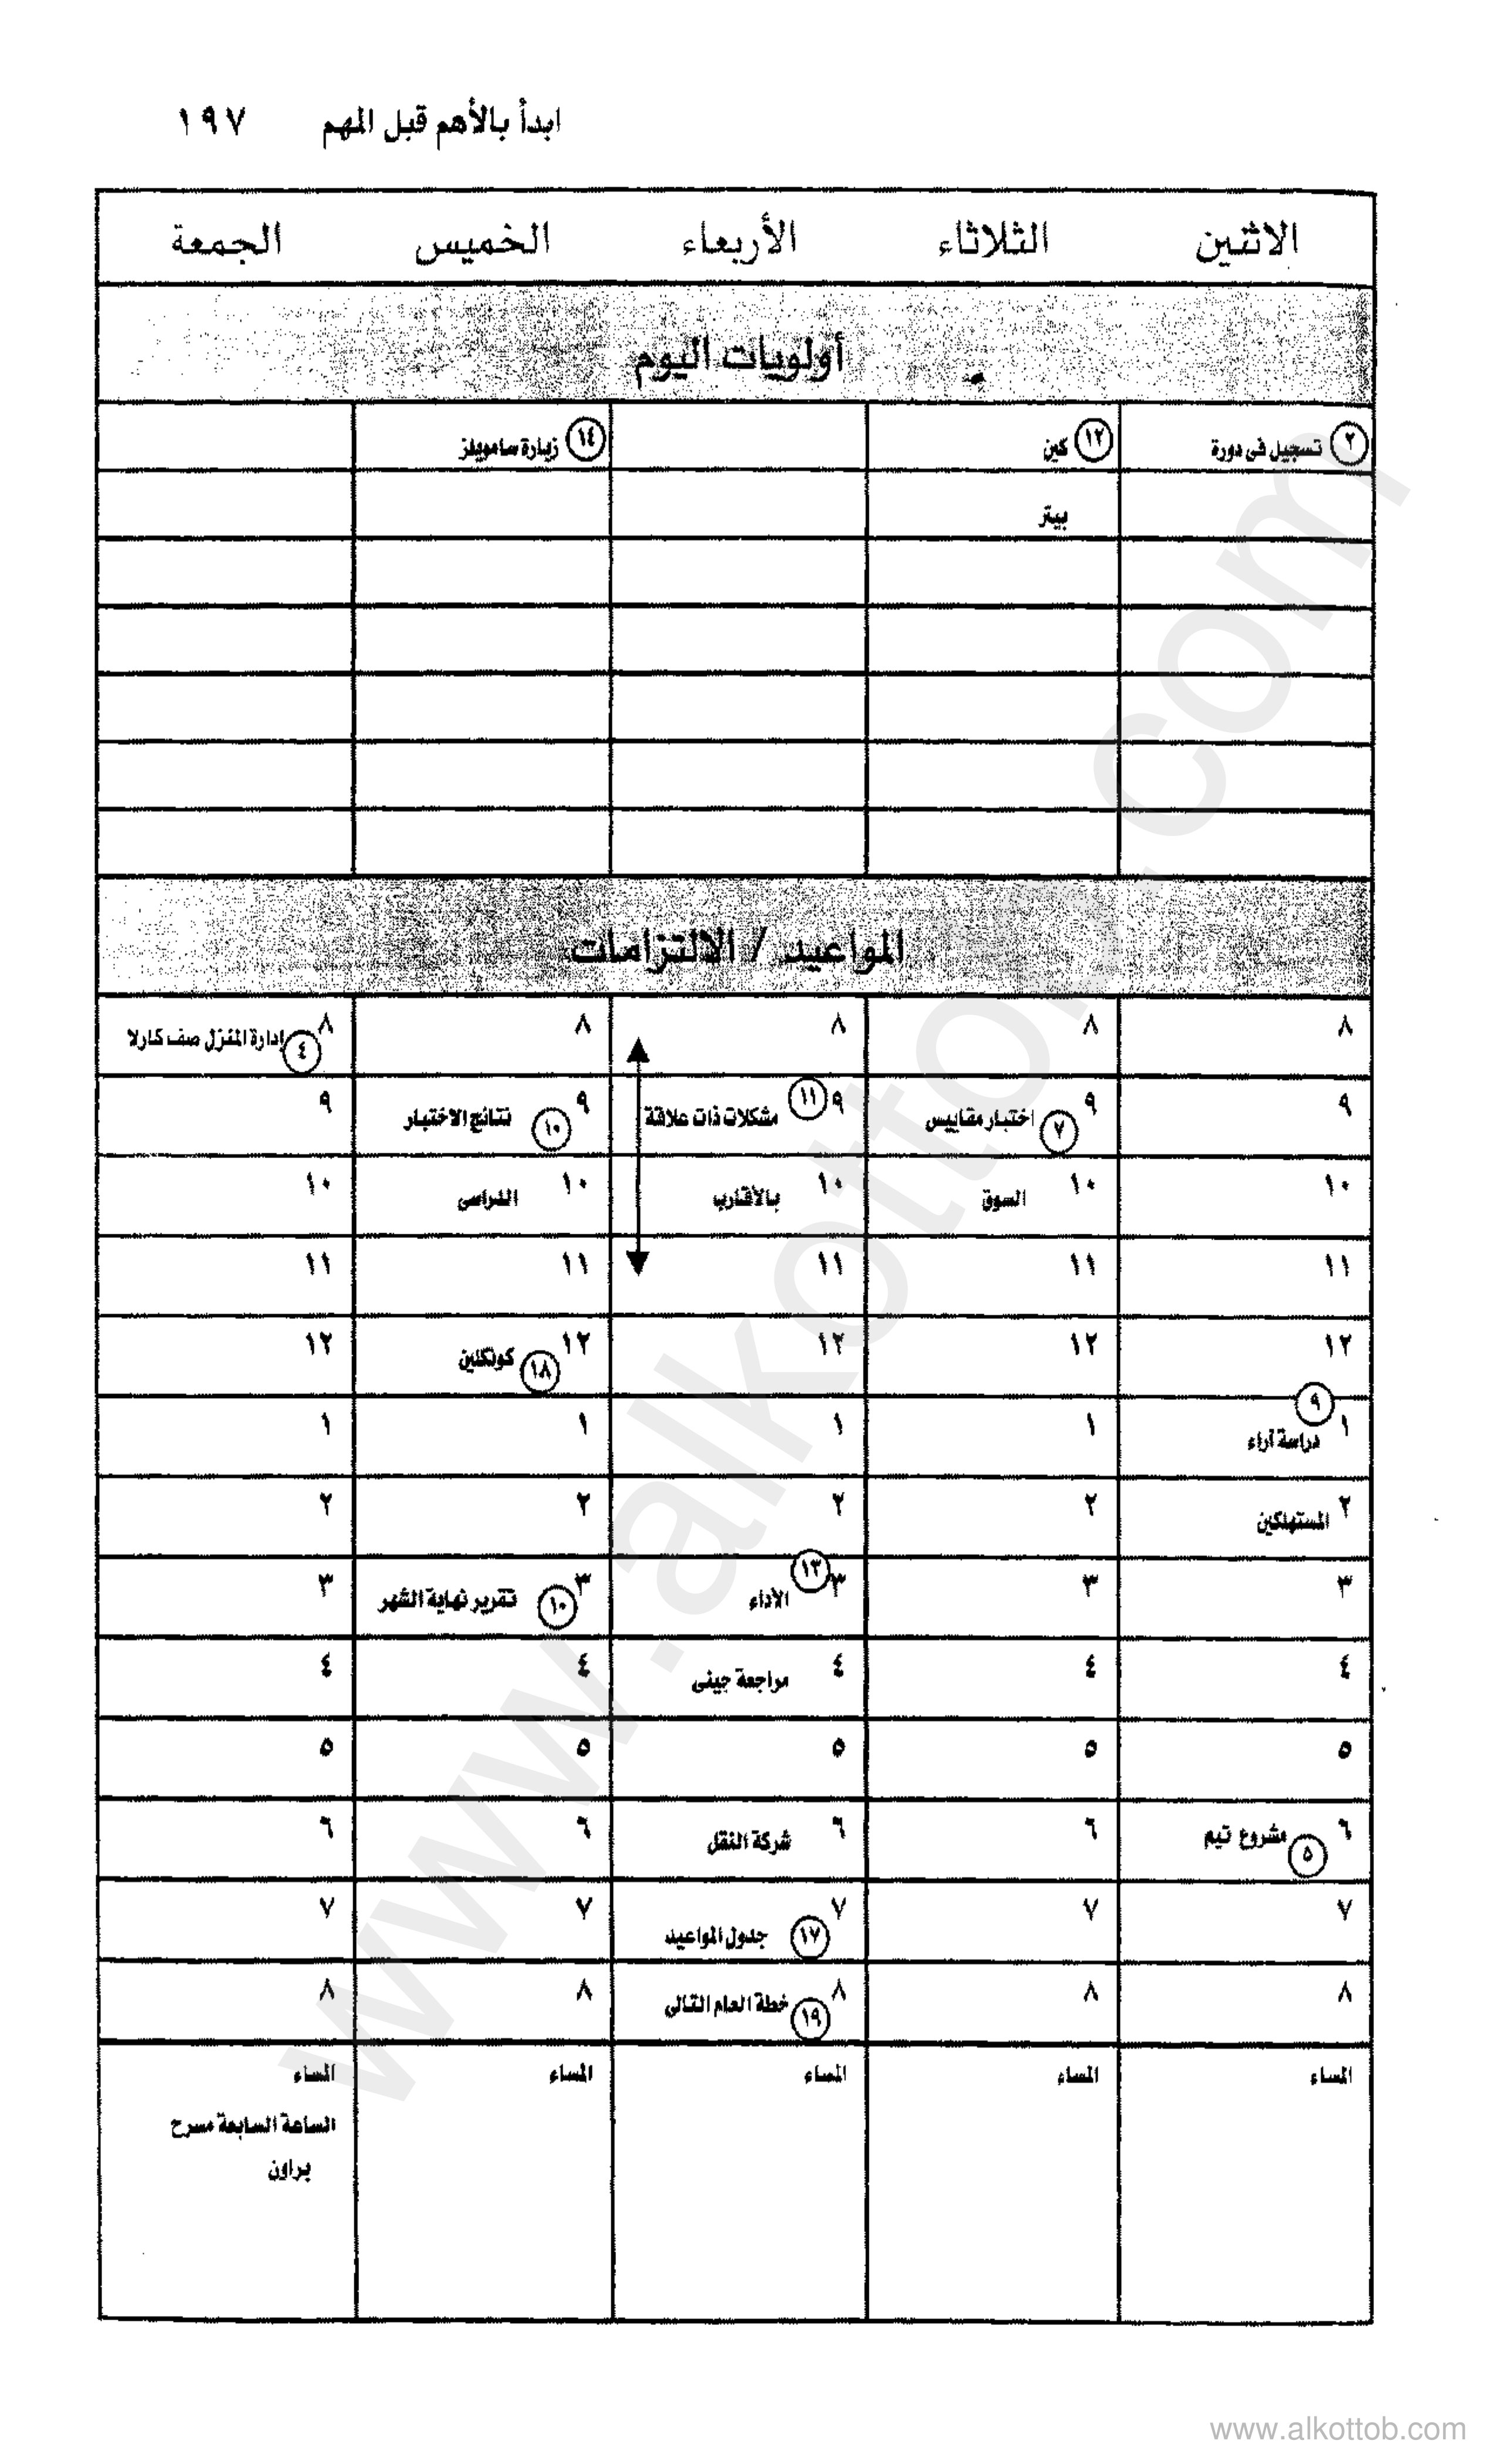 ابدأ بالأهم قبل المهم ١٩٧
الاثنين الثلاثاء الأربعاء الخميس الجمعة
أولويات اليوم
٢ تسجيل فى دورة ١٢ كين ١٤ زيارة سامويلز
بيتر
المواعيد / الالتزامات
٨ ٨ ٨ ٨ ٨ ٤ إدارة المنزل صف كارلا
٩ ٩ ٧ اختبار مقاييس ٩ ١١ مشكلات ذات علاقة ٩ ١٠ نتائج الاختبار ٩
١٠ ١٠ السوق ١٠ بالأقارب ١٠ الدراسى ١٠
١١ ١١ ١١ ١١ ١١
١٢ ١٢ ١٢ ١٢ ١٨ كونكلين ١٢
١ ٩ دراسة آراء ١ ١ ١ ١
٢ المستهلكين ٢ ٢ ٢ ٢
٣ ٣ ٣ ١٣ الأداء ٣ ١٠ تقرير نهاية الشهر ٣
٤ ٤ ٤ مراجعة جينى ٤ ٤
٥ ٥ ٥ ٥ ٥
٦ ٥ مشروع تيم ٦ ٦ شركة النقل ٦ ٦
٧ ٧ ٧ ١٧ جدول المواعيد ٧ ٧
٨ ٨ ٨ ١٩ خطة العام التالى ٨ ٨
المساء المساء المساء المساء المساء
الساعة السابعة مسرح
براون
www.alkottob.com
www.alkottob.com